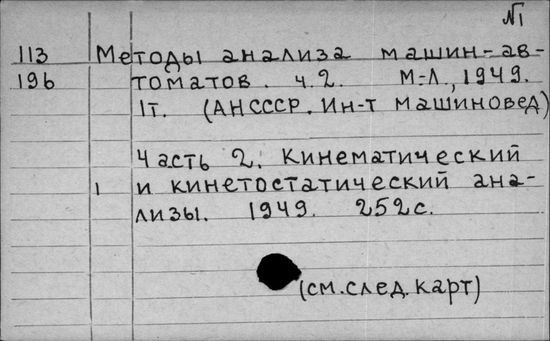 №1
113 Методы анализа машин-ав-
196 томатов. ч.2. М.-Л., 1949.
1т. (АНСССР. Ин-т машиновед)
Часть 2. Кинематический
1 и кинетостатический ана-
лизы. 1949. 252с.
(см.след.карт)